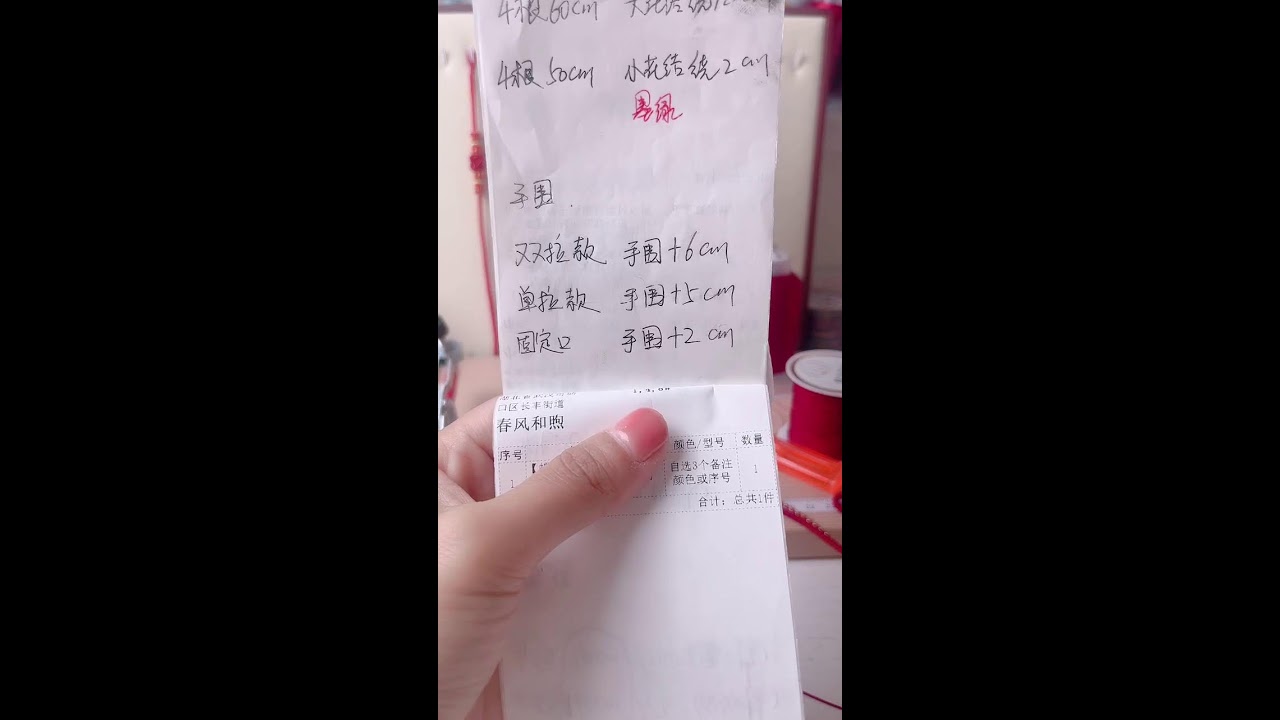 4根60cm 大花结绕
4根50cm 小花结绕2cm
墨绿
手围.
双拉款 手围+6cm
单拉款 手围+5cm
固定口 手围+2cm
口区长丰街道
春风和煦
序号 颜色/型号 数量
1 自选3个备注 1
颜色或序号
合计: 总共1件